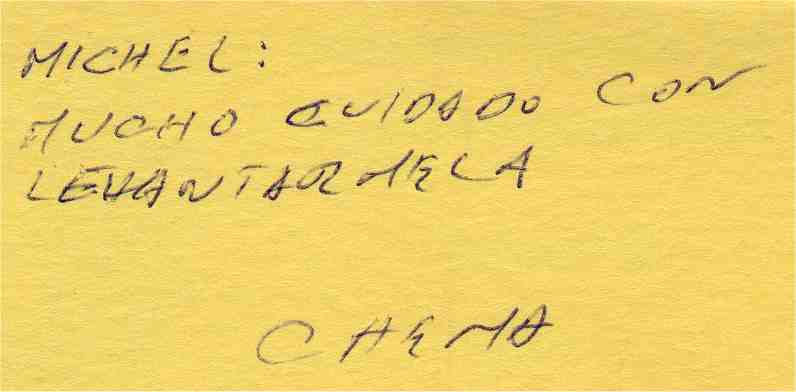 MICHEL:
MUCHO CUIDADO CON
LEVANTARMELA
CHEMA